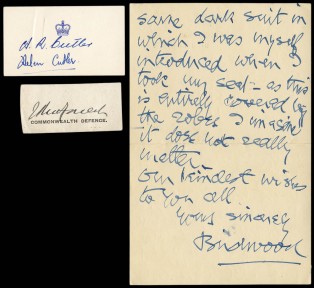 A. R. Cutler
Helen Cutler
COMMONWEALTH DEFENCE.
same dark suit in
which I was myself
introduced when I
took my seat – as this
is entirely covered by
the robes I imagine
it does not really
matter.
Our kindest wishes
to you all.
Yours sincerely
Birdwood